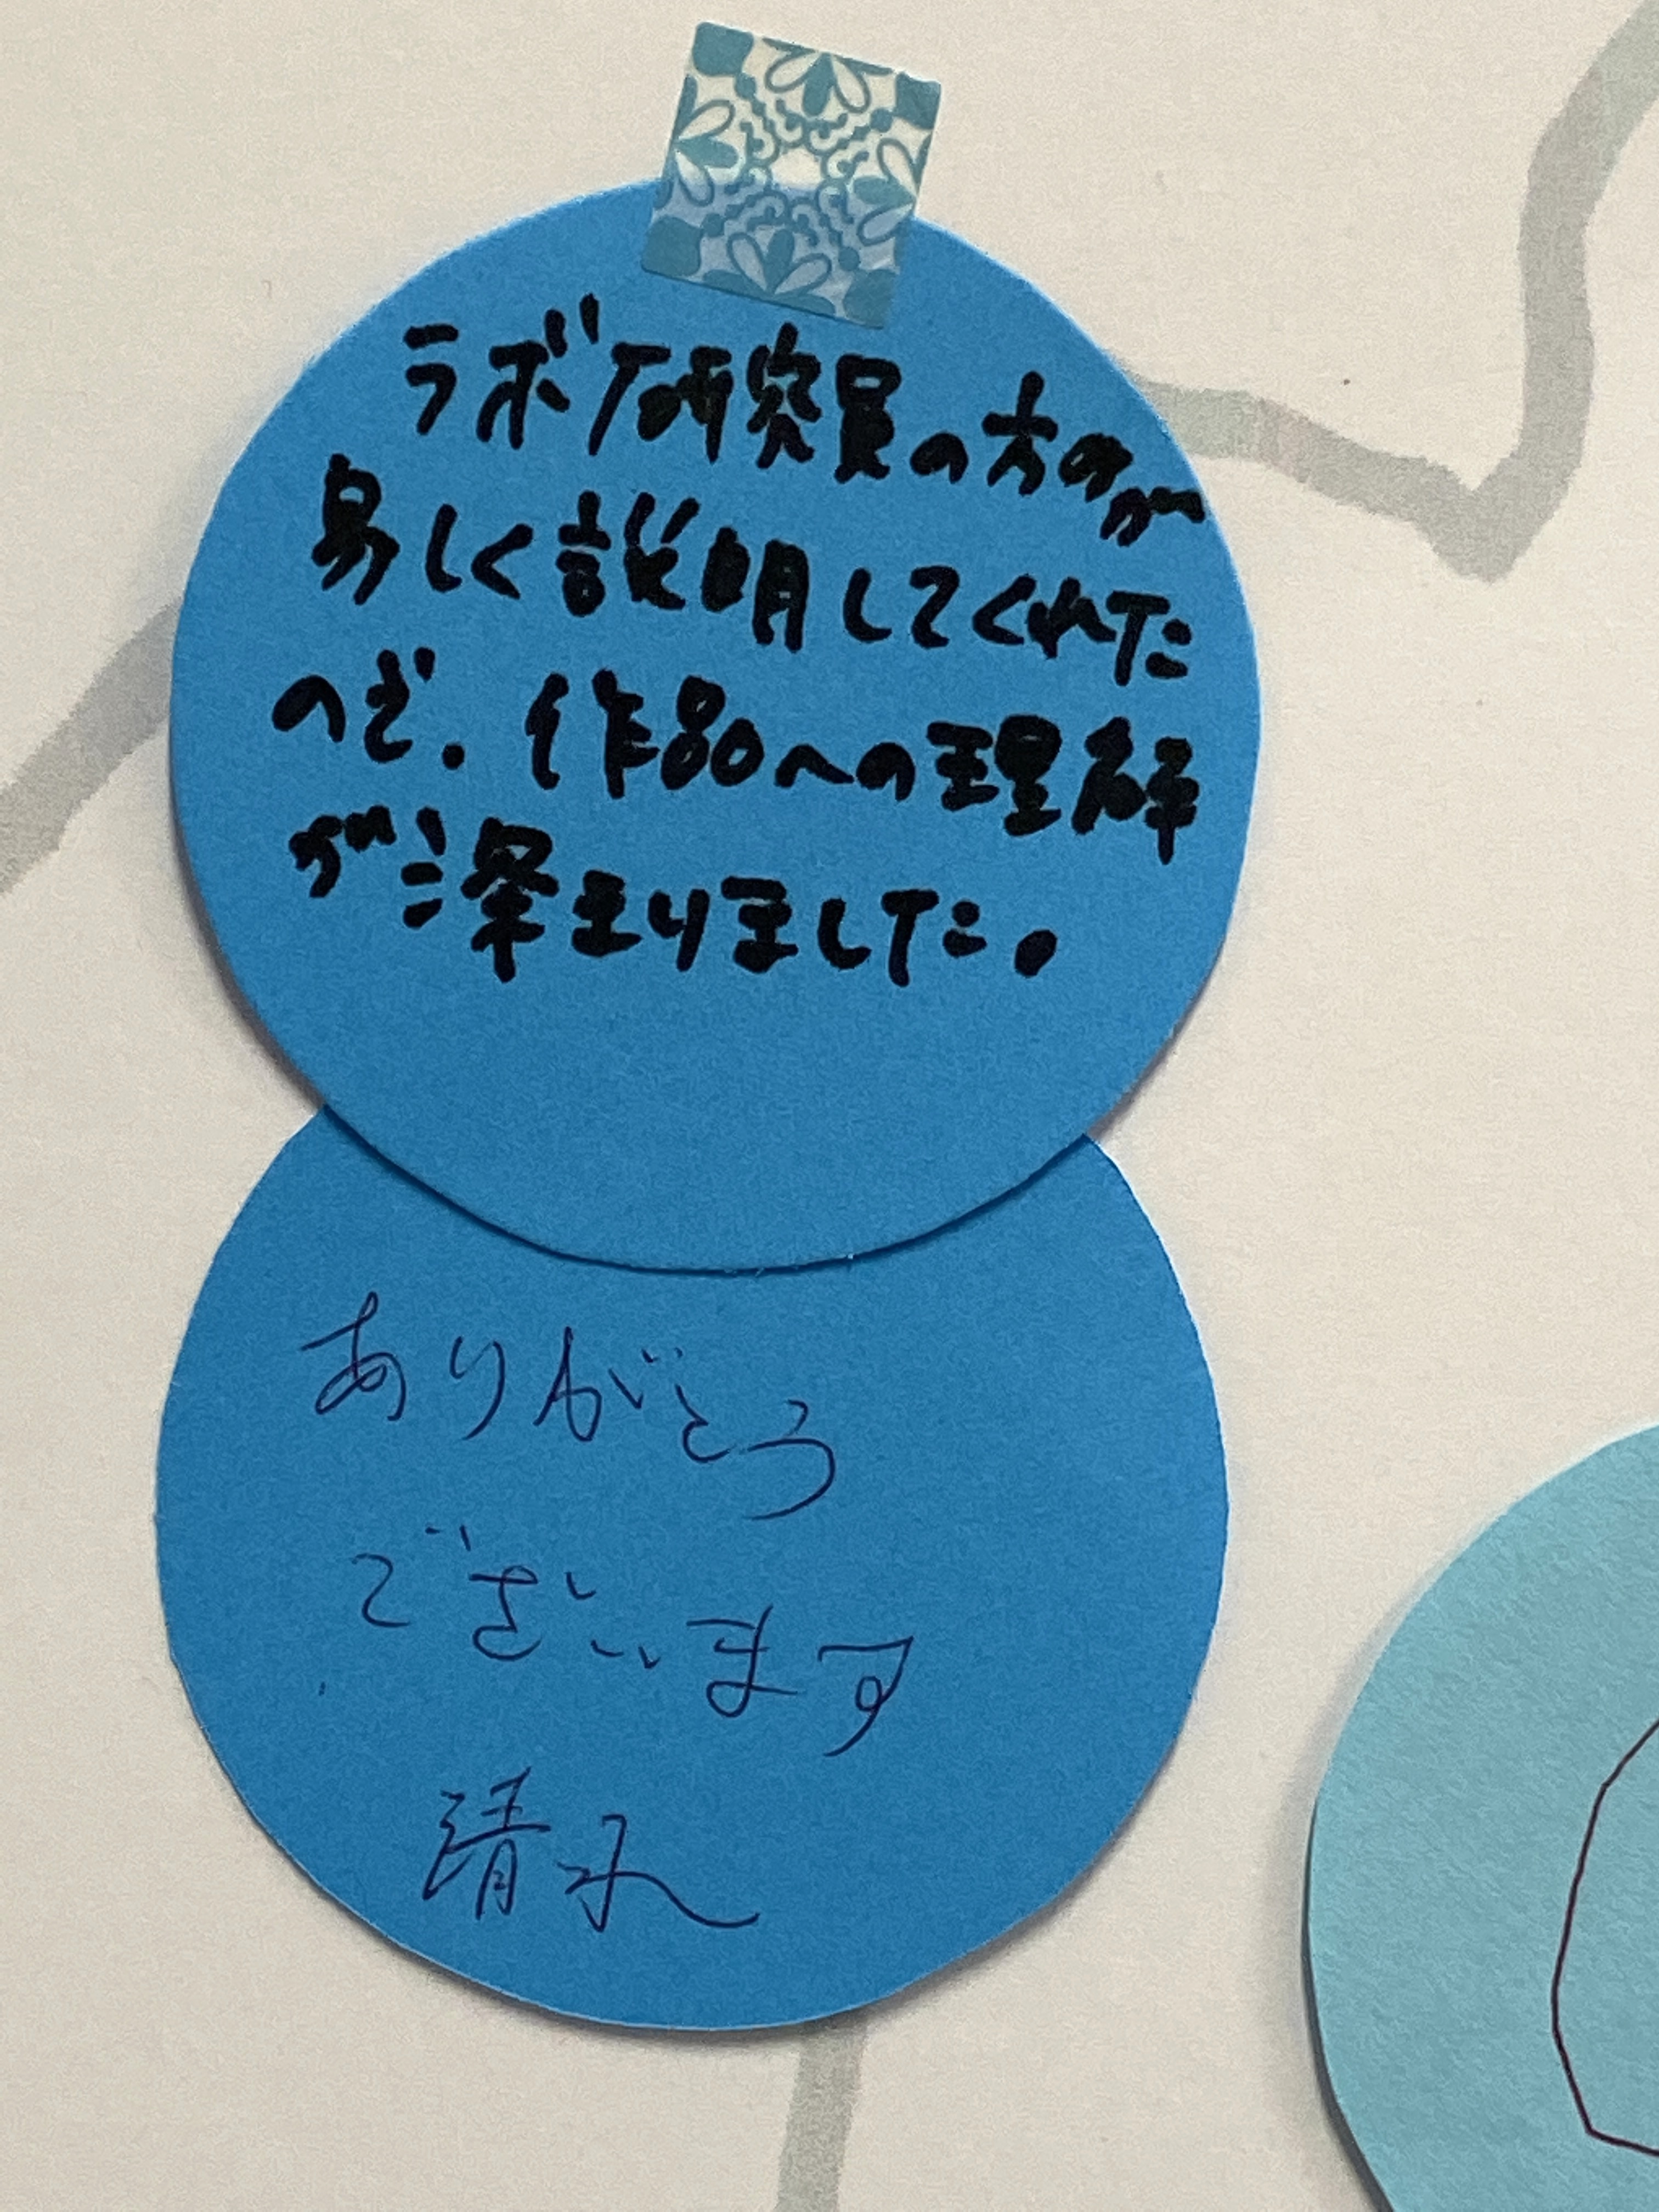 ラボ研究員の方のが
易しく説明してくれた
ので、作品への理解
が深まりました。
ありがとう
ございます
清水